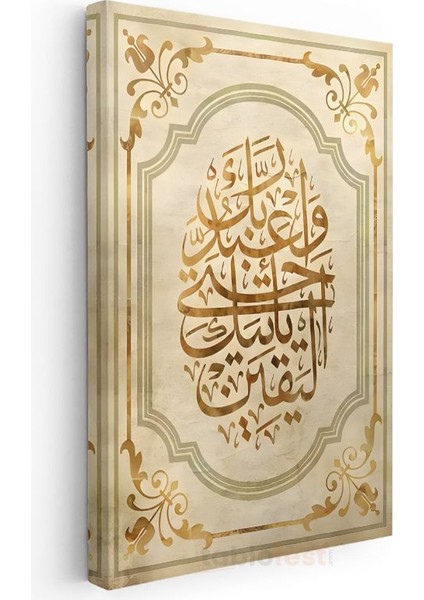 واعبد ربك
حتى
يأتيك
اليقين